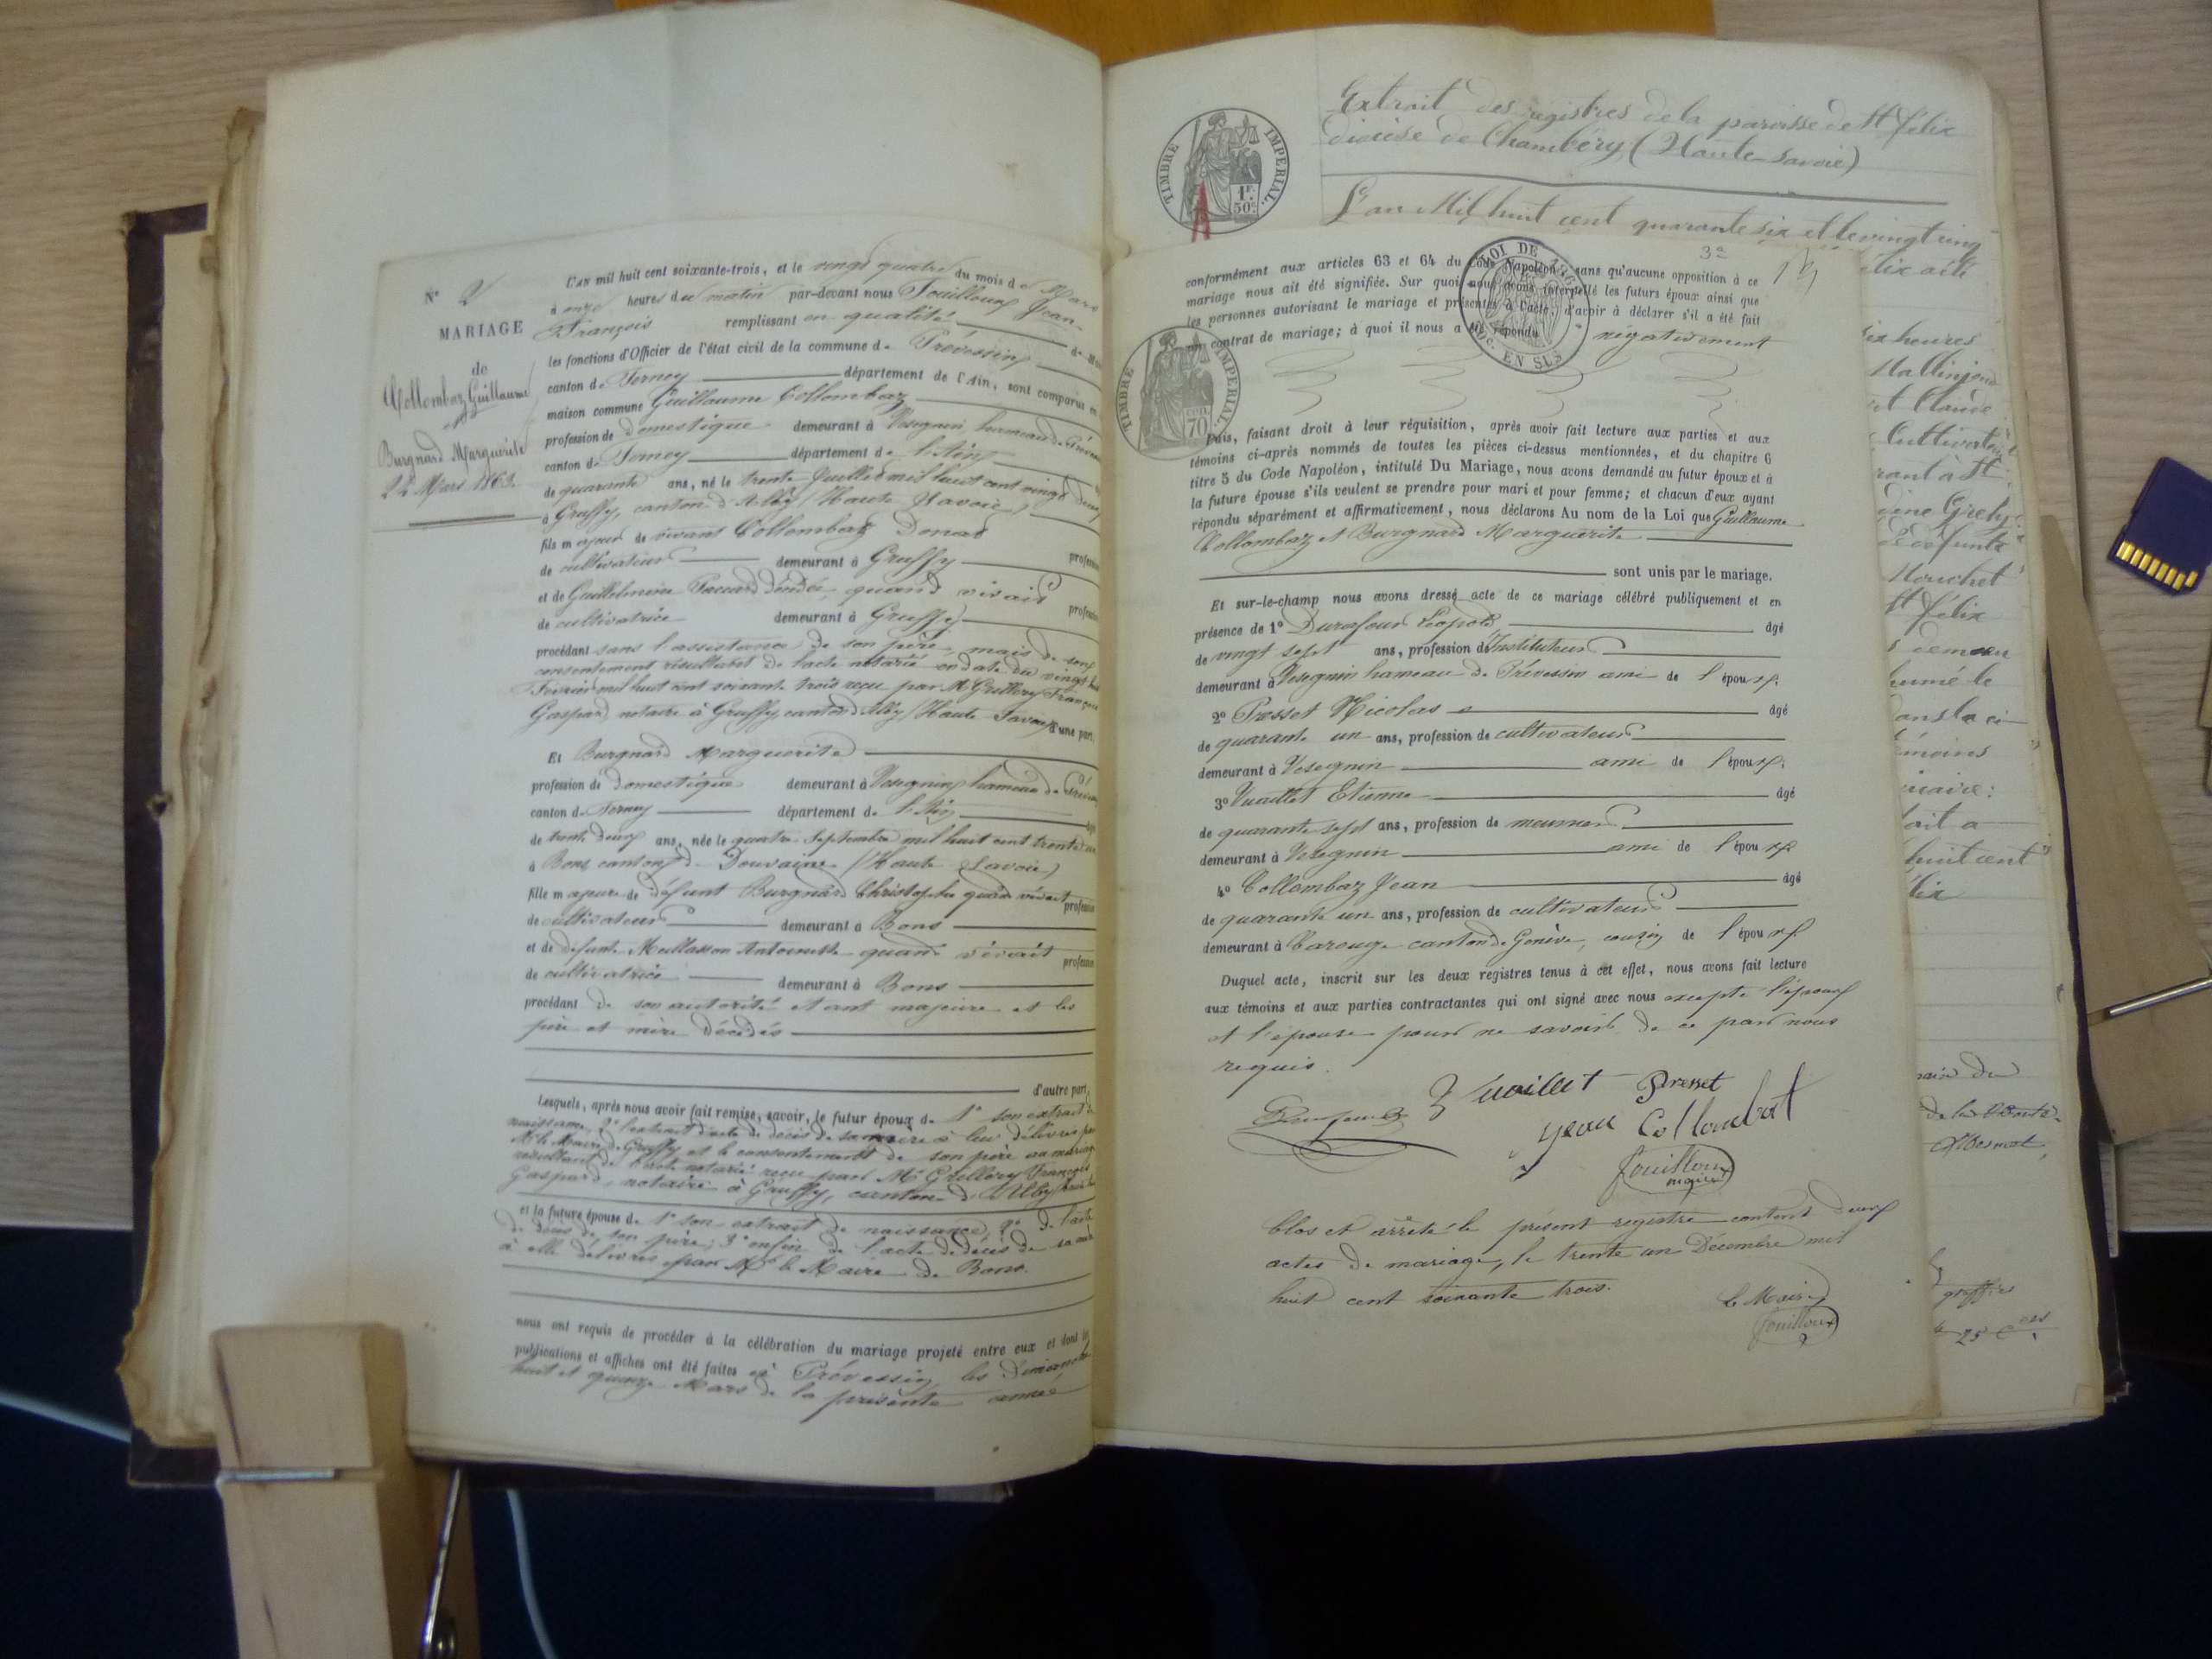 N° 2
MARIAGE
de
Collombaz Guillaume
et
Burgnard Marguerite
24 Mars 1863.
L'an mil huit cent soixante-trois, et le vingt quatre du mois de Mars
à onze heures du matin par-devant nous Fouilloux Jean-
François remplissant en qualité de
les fonctions d'Officier de l'état civil de la commune de Prévessin
canton de Ferney département de l'Ain, sont comparus en
maison commune Guillaume Collombaz
profession de domestique demeurant à Vesegnin hameau de
canton de Ferney département de l'Ain
de quarante ans, né le trente Juillet mil huit cent vingt deux
à Gruffy, canton d'Alby (Haute Savoie)
fils majeur de vivant Collombaz Donat
profession
de cultivateur demeurant à Gruffy
et de Guillelmine décédée quand vivait
profession
de cultivatrice demeurant à Gruffy
procédant sans l'assistance de son père, mais de son
consentement résultant de l'acte notarié en date du vingt
Février mil huit cent soixante trois reçu par Me Grillery François
Gaspard notaire à Gruffy, canton d'Alby (Haute Savoie) d'une part,
Et Burgnard Marguerite
profession de domestique demeurant à Vesegnin hameau de
canton de Ferney département de l'Ain
de trente deux ans, née le quatre Septembre mil huit cent trente
à Bons, canton de Douvaine (Haute Savoie)
fille majeure de défunt Burgnard Christophe quand vivait
profession
de cultivateur demeurant à Bons
et de défunte Antoinette quand vivait
profession
de cultivatrice demeurant à Bons
procédant de son autorité étant majeure et les
père et mère décédés
d'autre part,
Lesquels, après nous avoir fait remise, savoir, le futur époux de 1° son extrait de
naissance, 2° l'extrait d'acte de décès de sa mère à lui délivrés par
Mr le Maire de Gruffy et le consentement de son père au mariage
résultant de l'acte notarié reçu par Me Grillery François
Gaspard, notaire à Gruffy, canton d'Alby
et la future épouse de 1° son extrait de naissance, 2° de l'acte
de décès de son père; 3° enfin de l'acte de décès de sa mère
à elle délivrés par Mr le Maire de Bons.
nous ont requis de procéder à la célébration du mariage projeté entre eux et dont les
publications et affiches ont été faites à Prévessin, les Dimanches
huit et quinze Mars de la présente année
Extrait des registres de la paroisse de St félix
diocèse de Chambéry (Haute-Savoie)
TIMBRE IMPERIAL.
1F. 50c.
L'an Mil huit cent quarante six et le vingt cinq
3e
LOI DE 1862
2/10c. EN SUS
TIMBRE IMPERIAL.
cen. 70
conformément aux articles 63 et 64 du Code Napoléon, sans qu'aucune opposition à ce
mariage nous ait été signifiée. Sur quoi nous avons interpellé les futurs époux ainsi que
les personnes autorisant le mariage et présentes à l'acte, d'avoir à déclarer s'il a été fait
un contrat de mariage; à quoi il nous a été répondu négativement
Puis, faisant droit à leur réquisition, après avoir fait lecture aux parties et aux
témoins ci-après nommés de toutes les pièces ci-dessus mentionnées, et du chapitre 6
titre 5 du Code Napoléon, intitulé Du Mariage, nous avons demandé au futur époux et à
la future épouse s'ils veulent se prendre pour mari et pour femme; et chacun d'eux ayant
répondu séparément et affirmativement, nous déclarons Au nom de la Loi que Guillaume
Collombaz et Burgnard Marguerite
sont unis par le mariage.
Et sur-le-champ nous avons dressé acte de ce mariage célébré publiquement et en
présence de 1° Durafour Léopold âgé
de vingt sept ans, profession d'Instituteur
demeurant à Vesegnin hameau de Prévessin ami de l'époux;
2° Presset Nicolas âgé
de quarante un ans, profession de cultivateur
demeurant à Vesegnin ami de l'époux;
3° Vuaillet Etienne âgé
de quarante sept ans, profession de meunier
demeurant à Vesegnin ami de l'époux
4° Collombaz Jean âgé
de quarante un ans, profession de cultivateur
demeurant à Carouge canton de Genève, cousin de l'époux.
Duquel acte, inscrit sur les deux registres tenus à cet effet, nous avons fait lecture
aux témoins et aux parties contractantes qui ont signé avec nous excepté l'époux
et l'épouse pour ne savoir de ce par nous
requis.
Vuaillet Presset
Durafour
jean Collombat
fouilloux
maire
Clos et arrêté le présent registre contenant deux
actes de mariage, le trente un Décembre mil
huit cent soixante trois.
le Maire
fouilloux
six heures
et Claude
Cultivateur
St félix
témoins
huit cent
greffier
25 ces